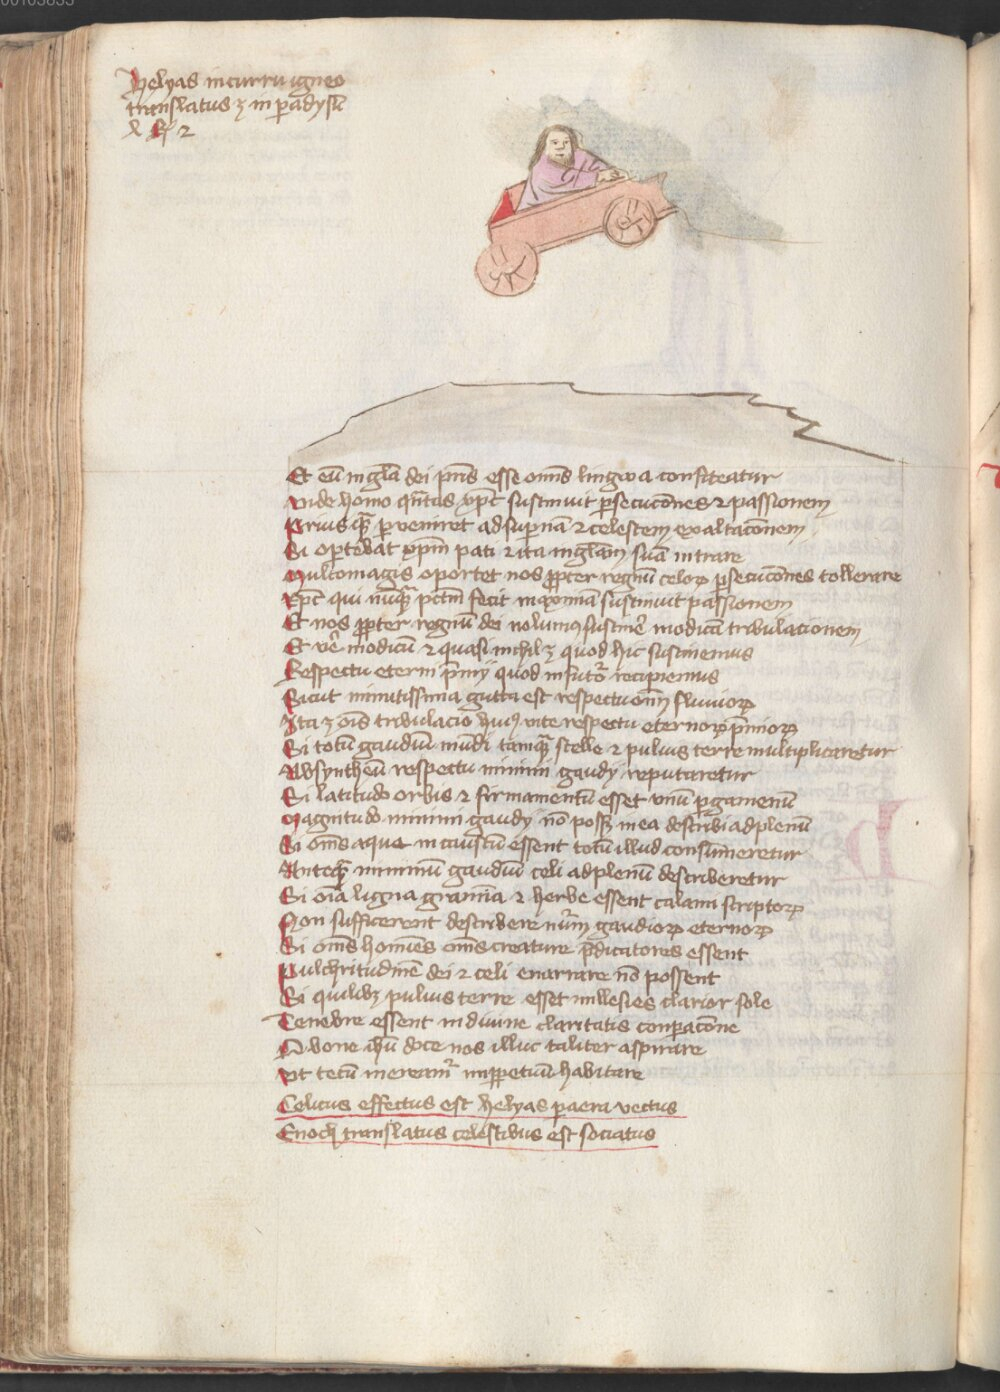 Helyas in curru igneo
translatus ⁊ in ꝑadysū
4 Rꝭ 2
Et eū in gl̄a dei pr̄is esse om̄is lingwa confiteatur
Vide homo qn̄tas xp̄c sustinuit ꝑsecucōnes ⁊ passionem
Priusqꝫ ꝑueniret ad suꝑnā ⁊ celestem exaltacōnem
Si oportebat xp̄m pati ⁊ ita in gl̄am suā intrare
Multomagis oportet nos ꝓpter regnū celoꝝ ꝑsecucōnes tollerare
Xp̄c qui nūqꝫ pctm̄ fecit maximā sustinuit passionem
Et nos ꝓpter regnū dei nolumꝰ sustinē modicā tribulacionem
Et vē modicū ⁊ quasi nichil ē quod hic sustinemus
Respectu eterni p̄mij quod in futuro recipiemus
Sicut minutissima gutta est respectu om̄ fluuioꝝ
Ita ē om̄is tribulacio huiꝰ vite respectu eternoꝝ p̄mioꝝ
Si totū gaudiū mūdi tamqꝫ stelle ⁊ puluis terre multiplicaretur
Absyntheū respectu minimi gaudij reputaretur
Si latitudo orbis ⁊ firmamentū esset vnū ꝑgamenū
Magnitudo minimi gaudij nō possꝫ in ea describi ad plenū
Si om̄s aque in incaustū essent totū illud consumeretur
Anteqꝫ minimū gaudiū celi ad plenū describeretur
Si oīa ligna gramīa ⁊ herbe essent calami scriptoꝝ
Non sufficerent describere nūm gaudioꝝ eternoꝝ
Si om̄s homīes om̄s creature p̄dicatores essent
Pulchritudinē dei ⁊ celi enarrare nō possent
Si quilibꝫ puluis terre esset millesies clarior sole
Tenebre essent in diuine claritatis conꝑacōne
O bone ihū doce nos illuc taliter aspirare
Vt tecū mereamͬ inꝑpetuū habitare
Celicus effectus est helyas ꝑ aera vectus
Enoch translatus celestibus est sociatus